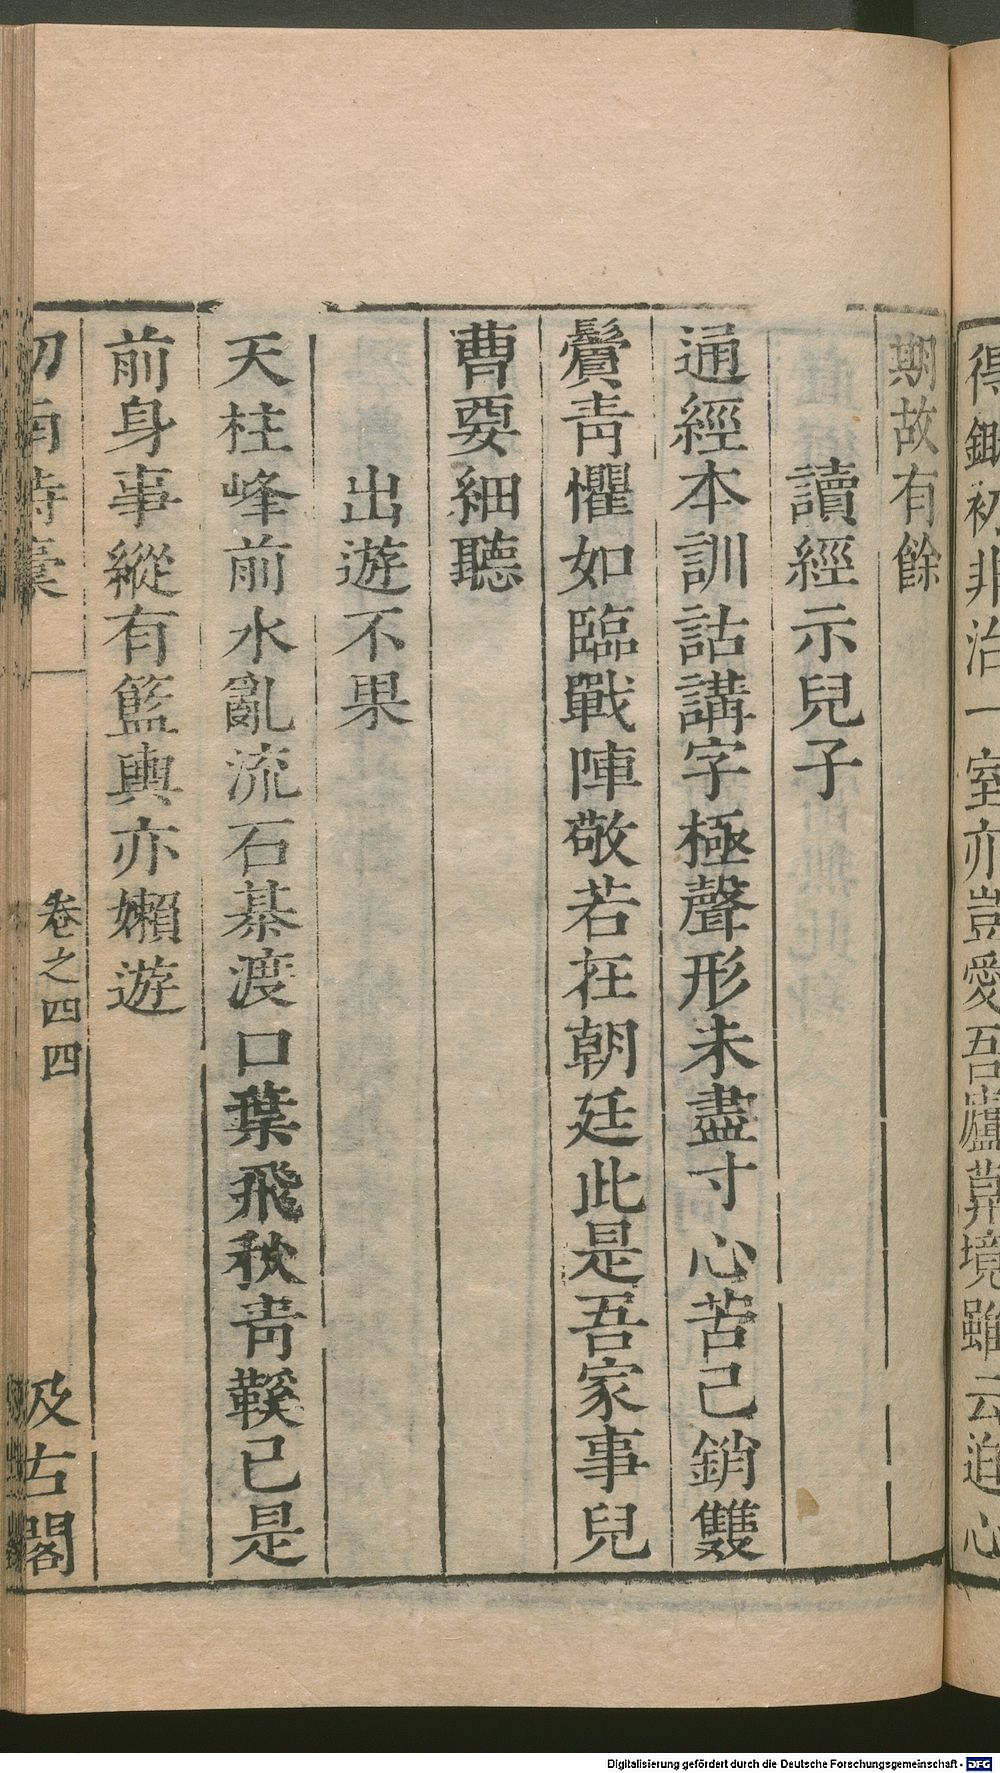 得鋤初非治一室亦豈愛吾廬葬境雖云迫心
期故有餘
讀經示兒子
通經本訓詁講字極聲形未盡寸心苦已銷雙
鬢青懼如臨戰陣敬若在朝廷此是吾家事兒
曹要細聽
出遊不果
天柱峰前水亂流石棊渡口葉飛秋青鞵已是
前身事縱有籃輿亦嬾遊
劒南詩稾
卷之四四
汲古閣
Digitalisierung gefördert durch die Deutsche Forschungsgemeinschaft - DFG